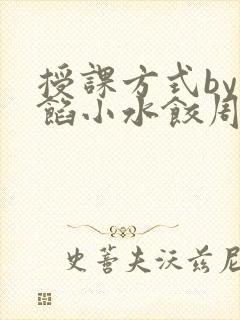 授課方式by
餡小水餃周
史蒈夫沃兹尼